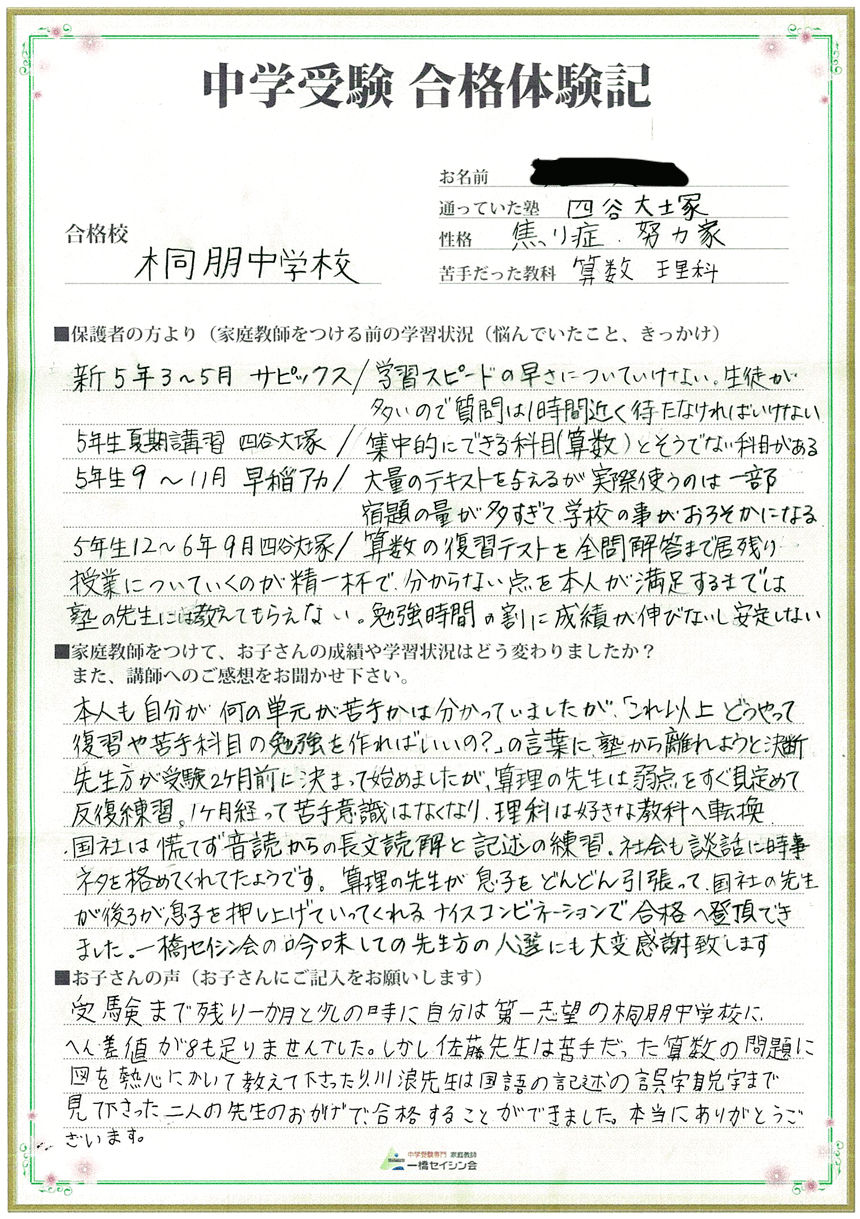 中学受験 合格体験記
お名前
通っていた塾 四谷大塚
合格校
性格 焦り症. 努力家
桐朋中学校
苦手だった教科 算数 理科
■保護者の方より（家庭教師をつける前の学習状況（悩んでいたこと、きっかけ）
新5年3~5月 サピックス/学習スピードの早さについていけない。生徒が
多いので質問は1時間近く待たなければいけない
5年生夏期講習 四谷大塚 / 集中的にできる科目(算数)とそうでない科目がある
5年生9 ~11月 早稲アカ/ 大量のテキストを与えるが実際使うのは一部
宿題の量が多すぎて、学校の事がおろそかになる
5年生12~6年9月四谷大塚/ 算数の復習テストを全問解答まで居残り
授業についていくのが精一杯で、分からない点を本人が満足するまでは
塾の先生には教えてもらえない。勉強時間の割に成績が伸びないし安定しない
■家庭教師をつけて、お子さんの成績や学習状況はどう変わりましたか？
また、講師へのご感想をお聞かせ下さい。
本人も自分が何の単元が苦手かは分かっていましたが、「これ以上どうやって
復習や苦手科目の勉強を作ればいいの?」の言葉に、塾から離れようと決断
先生方が受験2ケ月前に決まって始めましたが、算理の先生は弱点をすぐ見定めて
反復練習。1ヶ月経って苦手意識はなくなり、理科は好きな教科へ転換.
.国社は慌てず音読からの長文読解と記述の練習。社会も談話に時事
ネタを格めてくれてたようです。算理の先生が息子をどんどん引張って、国社の先生
が後ろが息子を押し上げていってくれるナイスコンビネーションで合格へ登頂でき
ました。一橋セイシン会の吟味しての先生方の人選にも大変感謝致します
■お子さんの声（お子さんにご記入をお願いします）
受験まで残り一か月と少しの時に自分は第一志望の桐朋中学校に
へん差値が8も足りませんでした。しかし佐藤先生は苦手だった算数の問題に
図を熱心にかいて教えて下さったり川浪先生は国語の記述の誤字脱字まで
見て下さった二人の先生のおかげで、合格することができました。本当にありがとうご
ざいます。
中学受験専門 家庭教師
一橋セイシン会